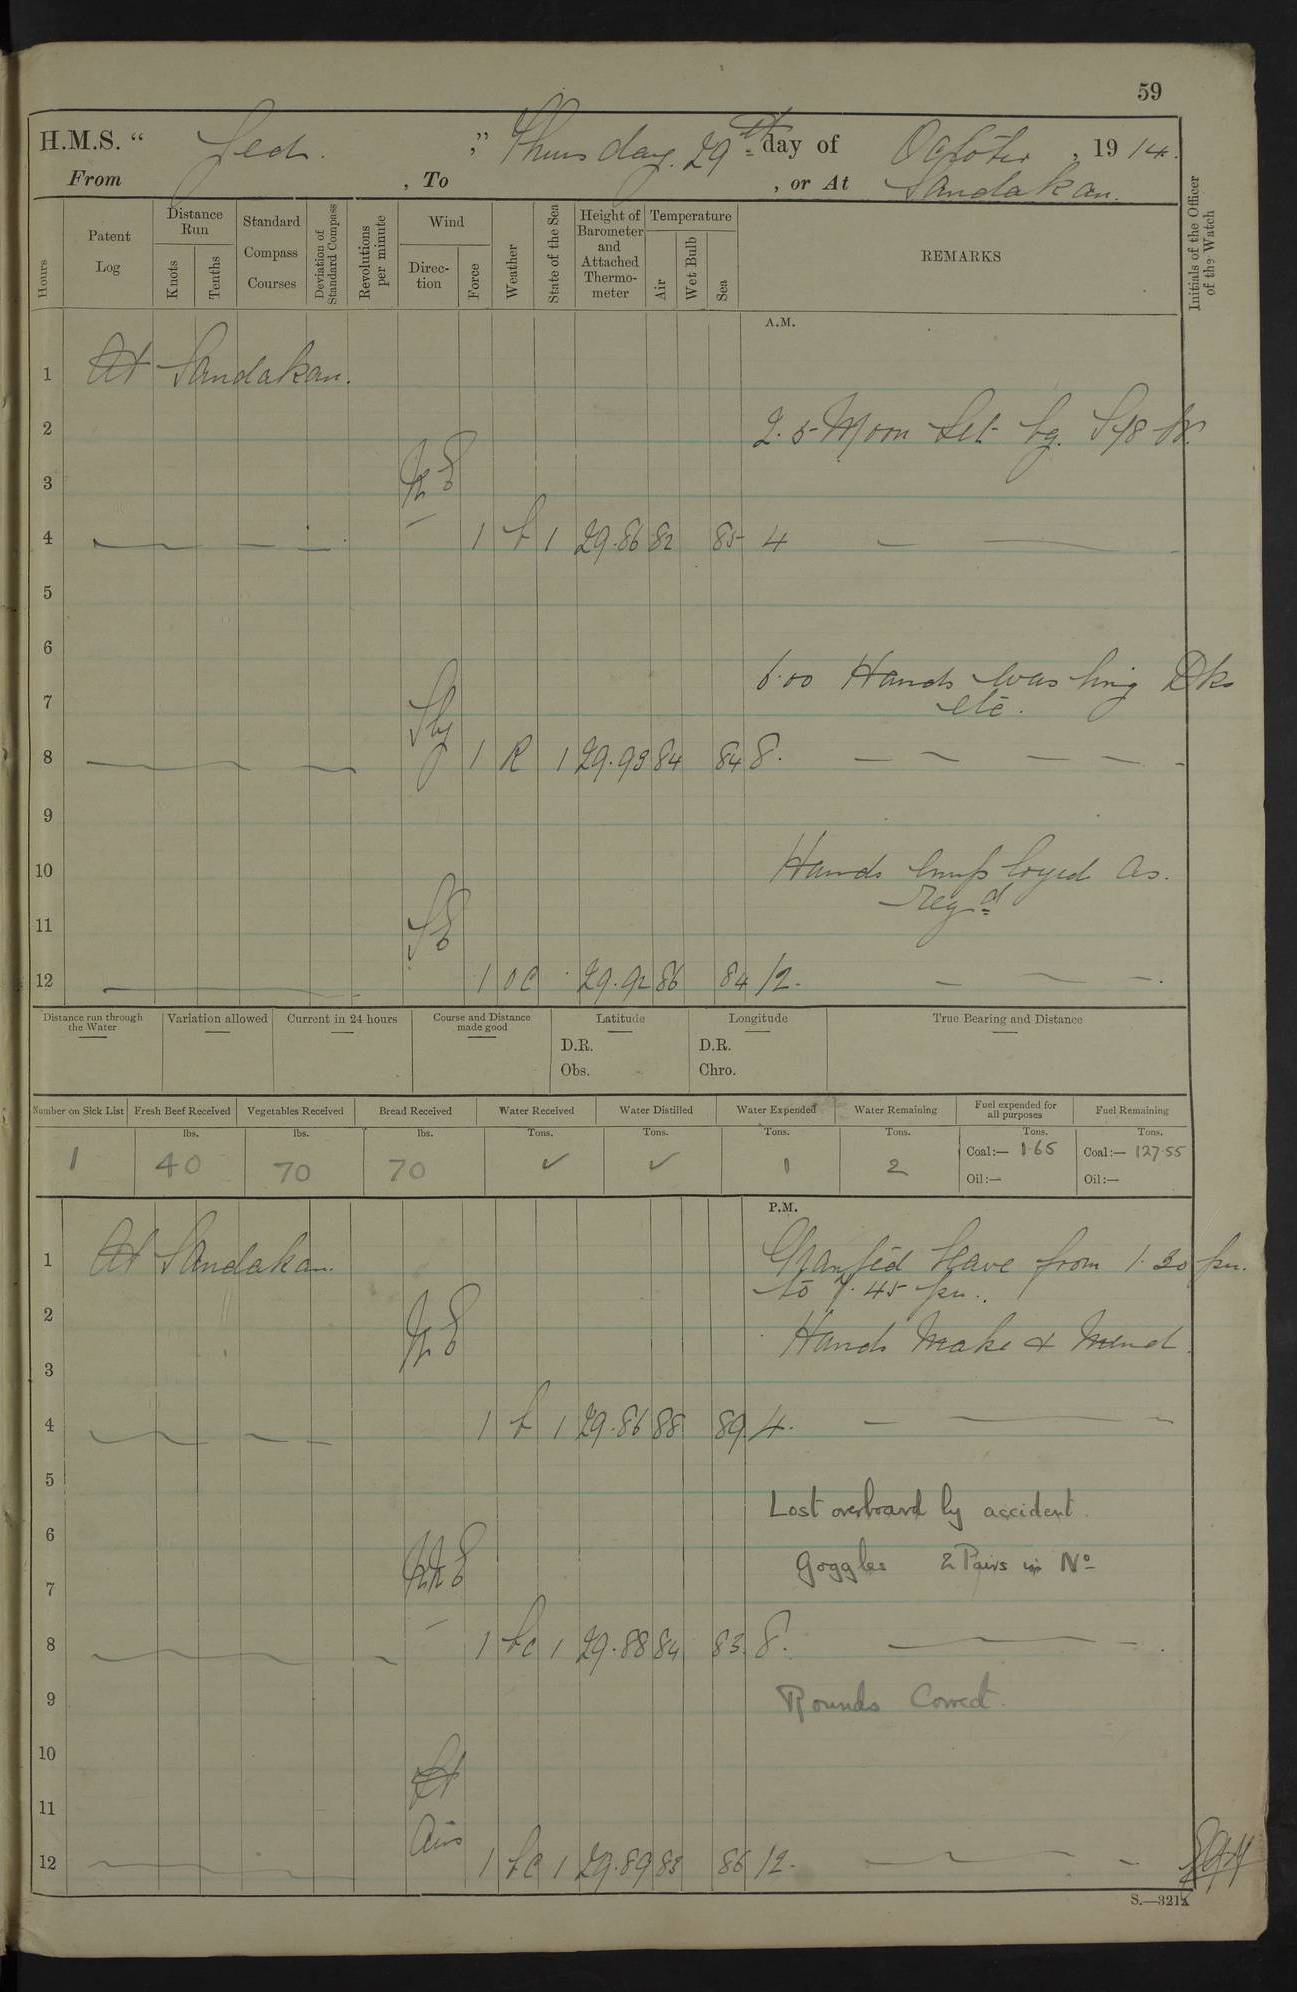 59
H.M.S. “ ” Thursday. 29th day of October, 1914.
From , To , or At Sandakan.
Hours
Patent Log
Distance Run
Knots
Tenths
Standard Compass Courses
Deviation of Standard Compass
Revolutions per minute
Wind
Direction
Force
Weather
State of the Sea
Height of Barometer and Attached Thermometer
Temperature
Air
Wet Bulb
Sea
REMARKS
Initials of the Officer of the Watch
A.M.
1 At Sandakan.
2 2.5 Moon Set bg.
3 NE
4 1 b 1 29.86 82 85 4
5
6 6.00 Hands washing Dks
7 Sly etc.
8 1 R 1 29.93 84 84 8.
9
10 Hands employed as.
11 SE Reqd
12 1 OC 29.92 86 84 12.
Distance run through the Water
Variation allowed
Current in 24 hours
Course and Distance made good
Latitude
D.R.
Obs.
Longitude
D.R.
Chro.
True Bearing and Distance
Number on Sick List
Fresh Beef Received
Vegetables Received
Bread Received
Water Received
Water Distilled
Water Expended
Water Remaining
Fuel expended for all purposes
Fuel Remaining
lbs. lbs. lbs. Tons. Tons. Tons. Tons. Tons. Tons.
1 40 70 70 ✓ ✓ 1 2 Coal:— 1.65 Coal:— 127.55
Oil:— Oil:—
P.M.
1 At Sandakan. Granted leave from 1.30 pm.
to 7.45 pm.
2 NE Hands Make & Mend
3
4 1 b 1 29.86 88 89 4.
5
Lost overboard by accident
6 Goggles 2 Pairs in No
7 NNE
8 1 bc 1 29.88 84 83 8.
9 Rounds Correct.
10 Lt
11 Airs
12 1 bc 1 29.89 83 86 12.
S.—321A